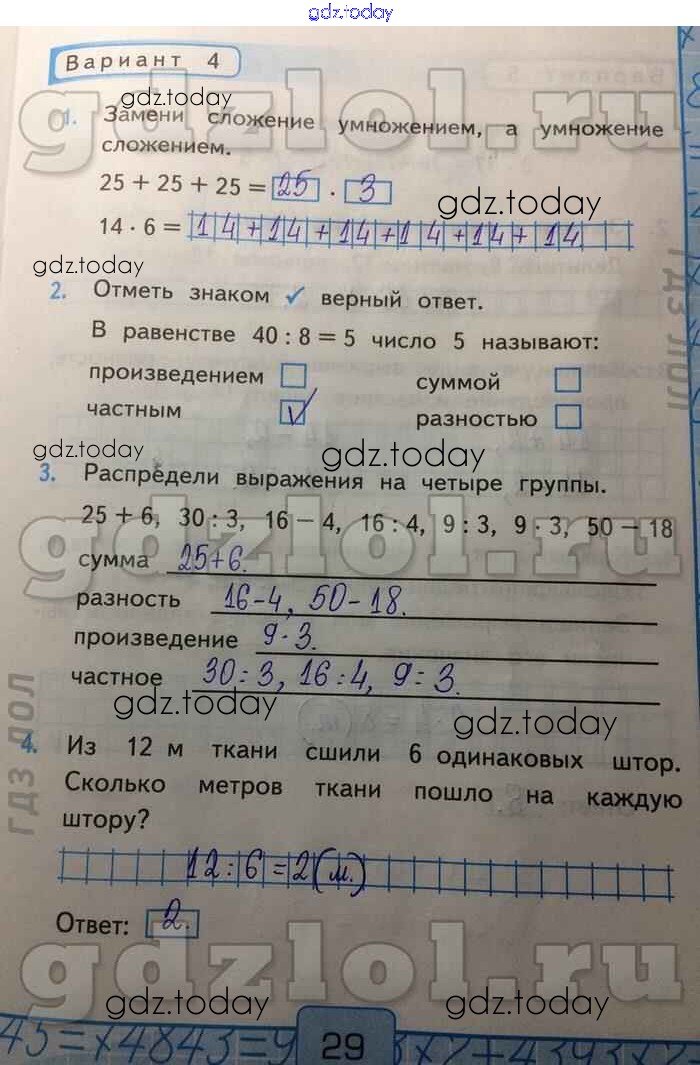 gdz.today
Вариант 4
gdzlol.ru
gdz.today
1. Замени сложение умножением, а умножение
сложением.
25 + 25 + 25 = 25 · 3
gdz.today
14 · 6 = 14+14+14+14+14+14
gdz.today
2. Отметь знаком ✓ верный ответ.
В равенстве 40 : 8 = 5 число 5 называют:
произведением суммой
частным ✓ разностью
gdz.today gdz.today
3. Распредели выражения на четыре группы.
25 + 6, 30 : 3, 16 − 4, 16 : 4, 9 : 3, 9 · 3, 50 − 18
gdzlol.ru
сумма 25+6.
разность 16-4, 50-18.
произведение 9·3.
частное 30:3, 16:4, 9:3.
gdz.today gdz.today
4. Из 12 м ткани сшили 6 одинаковых штор.
Сколько метров ткани пошло на каждую
штору?
12:6=2(м.)
Ответ: 2.
gdzlol.ru
gdz.today gdz.today
29
ГДЗ ЛОЛ
ГДЗ ЛОЛ